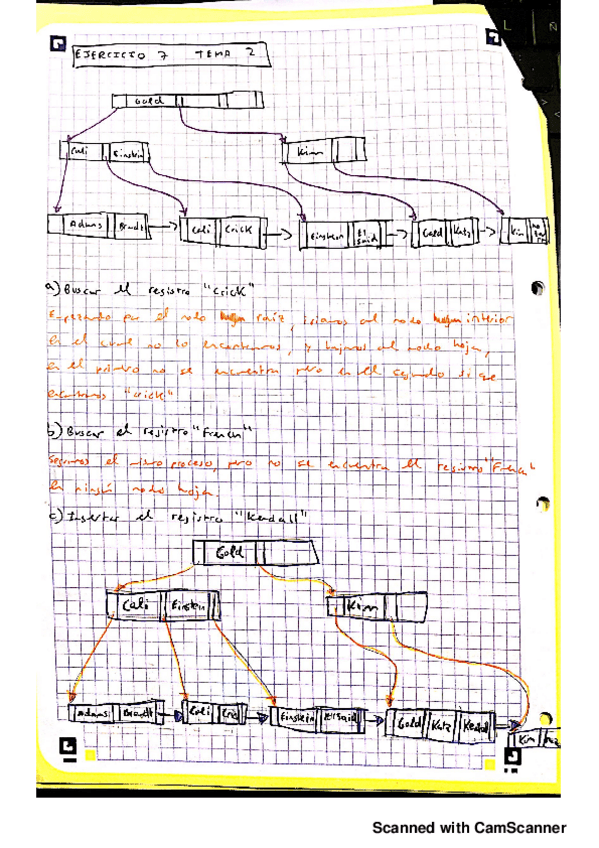 EJERCICIO 7 TEMA 2
Gold
Cali Einstein Kim
Adams Brandt Cali Crick Einstein El Said Gold Katz Kim
a) Buscar el registro "Crick"
Empezando por el nodo raiz, al nodo interior
en el cual no lo encontramos, y bajamos al nodo hoja,
en el primero no se encuentra pero en el segundo si que
encontramos "crick"
b) Buscar el registro "French"
Seguimos el mismo proceso, pero no se encuentra el registro "French"
en ningún nodo hoja.
c) Insertar el registro "Kendall"
Gold
Cali Einstein Kim
Adams Brandt Cali Einstein El Said Gold Katz Kim
Scanned with CamScanner